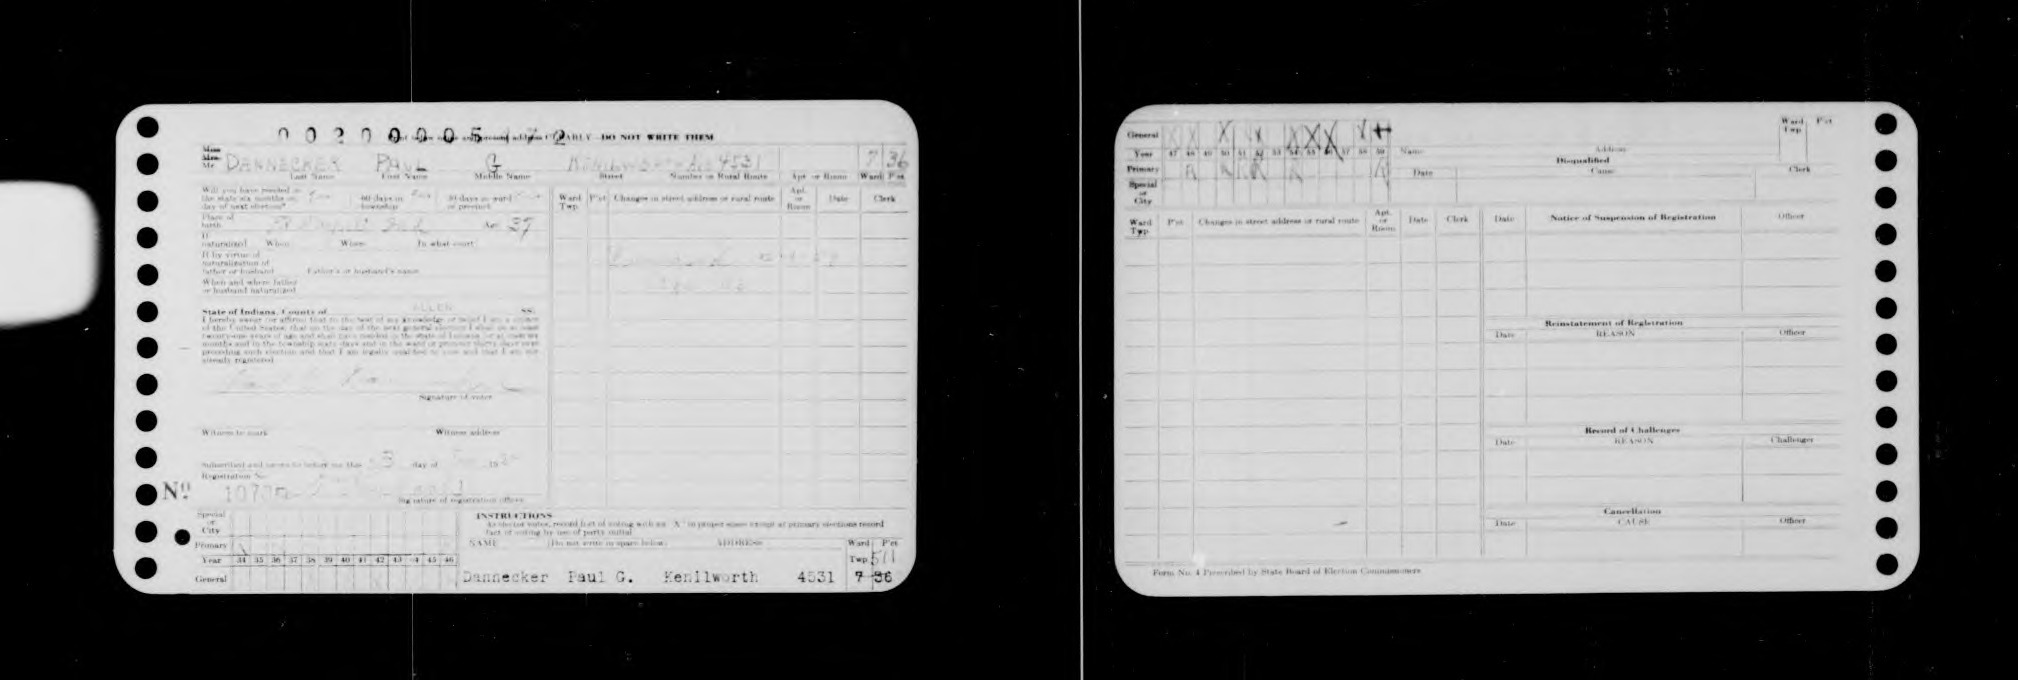 002000051 72
CLEARLY—DO NOT WRITE THEM
Miss
Mrs.
Mr. DANNECKER PAUL G KENILWORTH 4531 7 36
Last Name First Name Middle Name Street Number or Rural Route Apt. or Room Ward P'ct
Will you have resided in the state six months on day of next election? 60 days in township 30 days in ward or precinct
Ward Twp. P'ct Changes in street address or rural route Apt. or Room Date Clerk
Place of birth Age 37
If naturalized When Where In what court
If by virtue of naturalization of father or husband Father's or husband's name
When and where father or husband naturalized
State of Indiana, County of ALLEN SS:
I hereby swear (or affirm) that to the best of my knowledge or belief I am a citizen
of the United States; that on the day of the next general election I shall be at least
twenty-one years of age and shall have resided in the state of Indiana for at least six
months and in the township sixty days and in the ward or precinct thirty days next
preceding such election and that I am legally qualified to vote and that I am not
already registered
Signature of voter
Witness to mark Witness address
Subscribed and sworn to before me this 3 day of 19
Registration No.
No
Signature of registration officer
Special or City
Primary
Year 34 35 36 37 38 39 40 41 42 43 44 45 46
General
INSTRUCTIONS
As elector votes, record fact of voting with an "X" in proper space except at primary elections record
fact of voting by use of party initial
NAME (Do not write in space below) ADDRESS Ward P'ct
Twp. 511
Dannecker Paul G. Kenilworth 4531 7-36
General X X X X X X X X X
Year 47 48 49 50 51 52 53 54 55 56 57 58 59
Primary R R R R R R
Special or City
Name Address Ward Twp. P'ct
Disqualified
Date Cause Clerk
Ward Twp. P'ct Changes in street address or rural route Apt. or Room Date Clerk
Date Notice of Suspension of Registration Officer
Reinstatement of Registration
Date REASON Officer
Record of Challenges
Date REASON Challenger
Cancellation
Date CAUSE Officer
Form No. 4 Prescribed by State Board of Election Commissioners